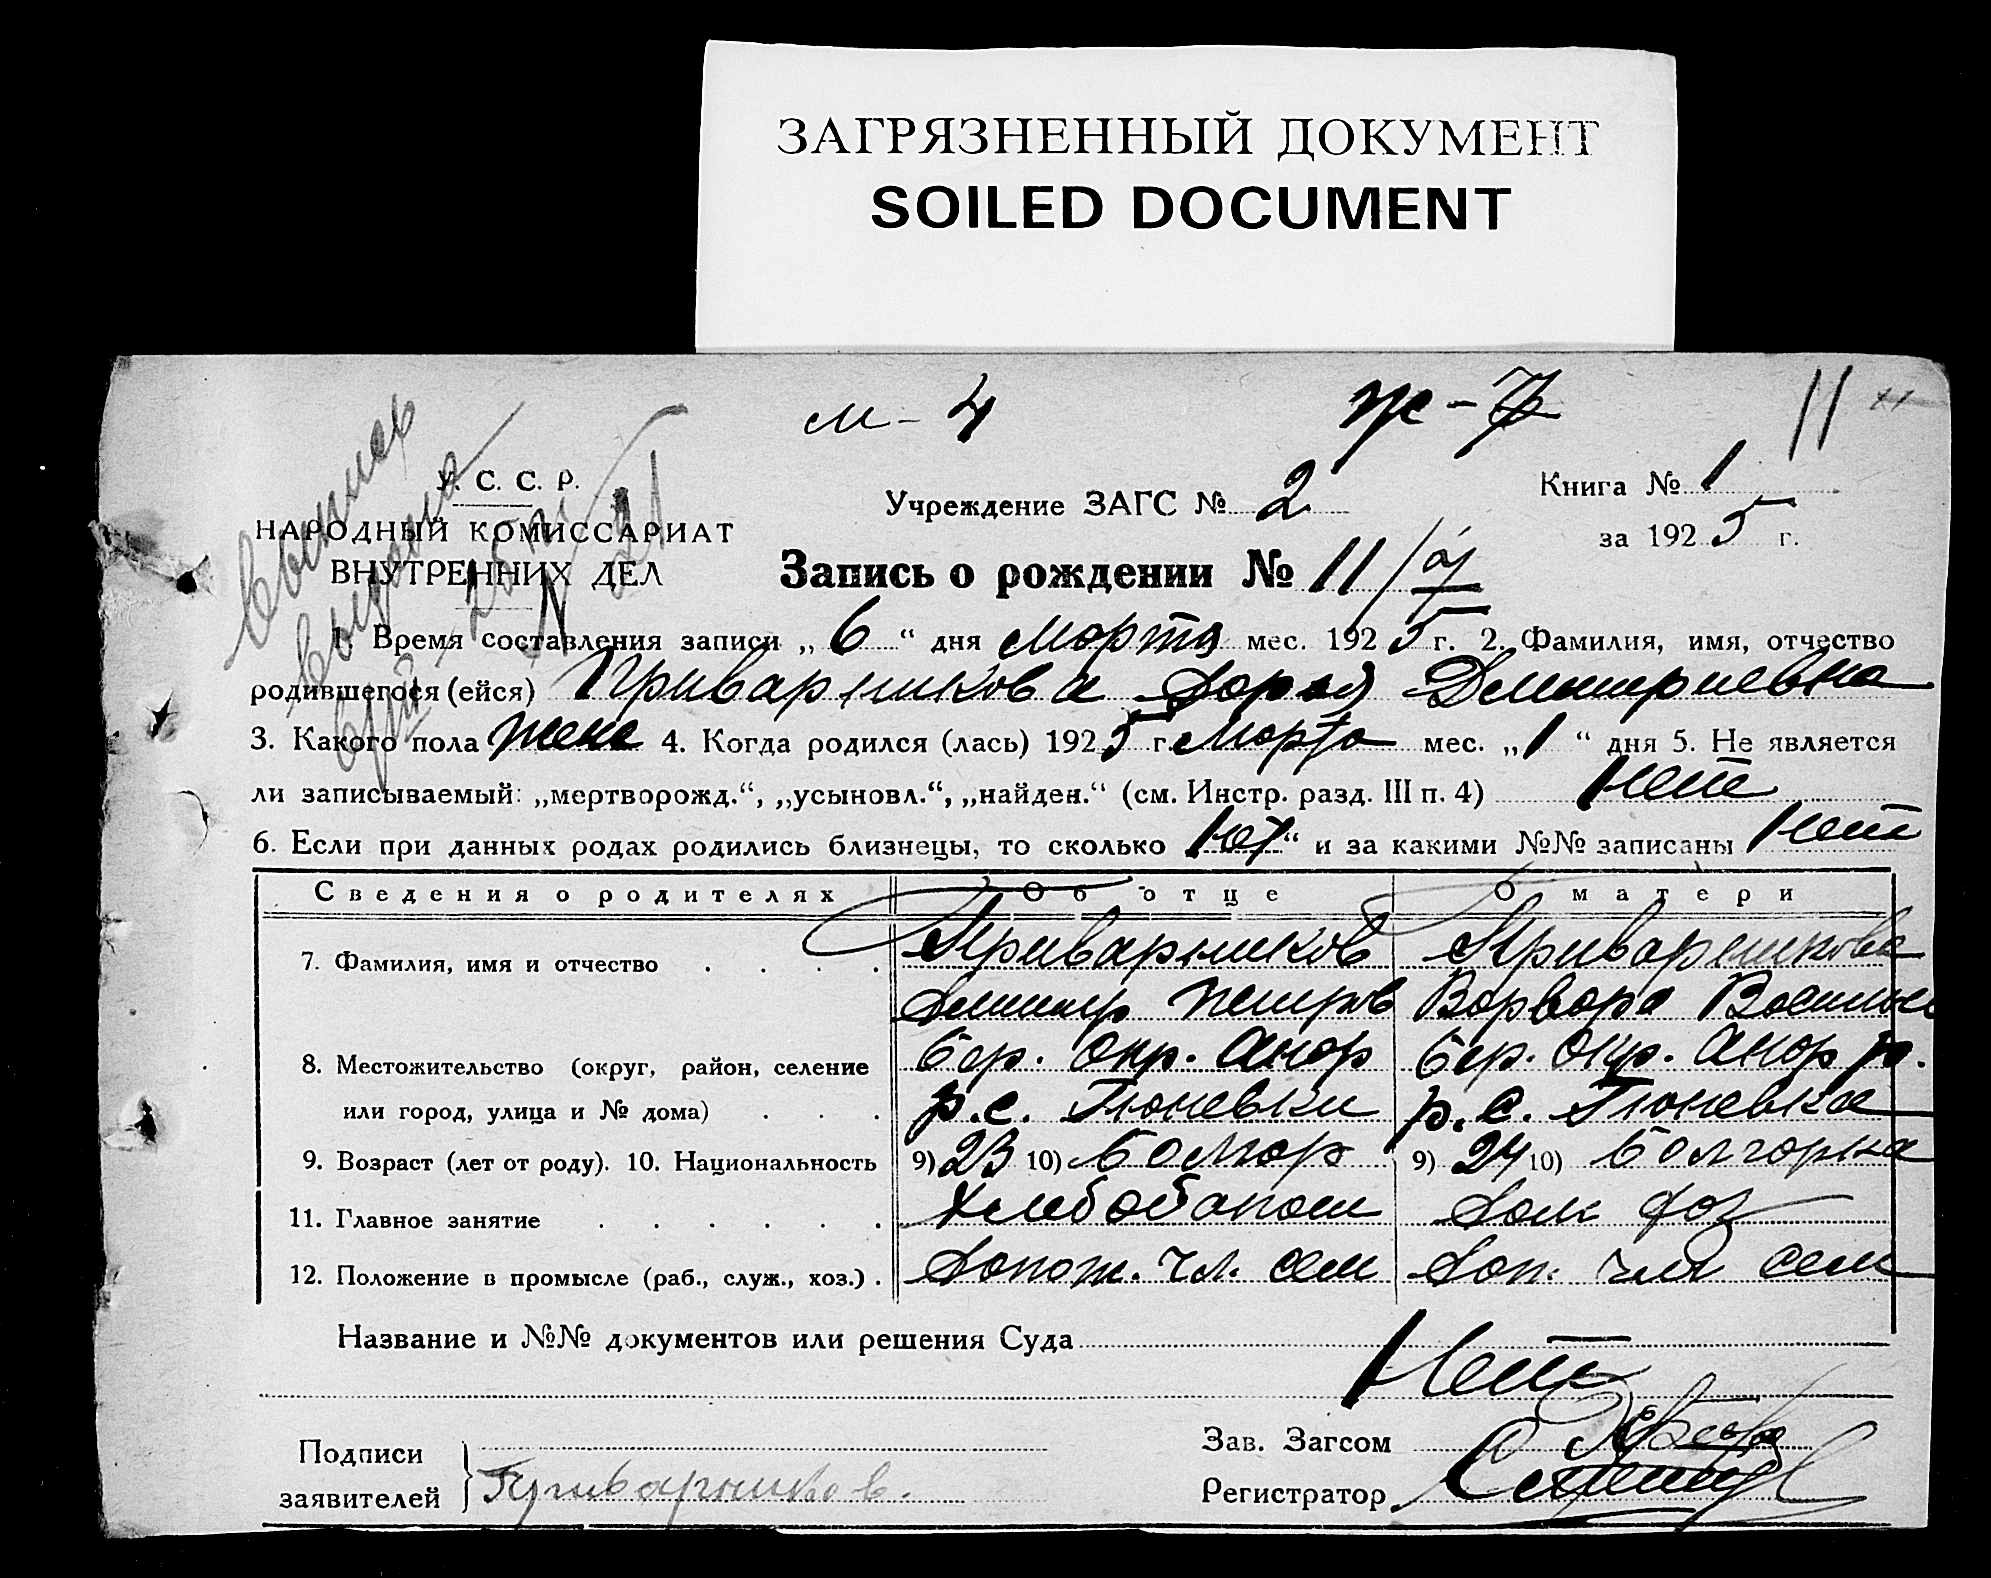 ЗАГРЯЗНЕННЫЙ ДОКУМЕНТ
SOILED DOCUMENT
м - 4 ж - 7 11
У. С. С. Р.
НАРОДНЫЙ КОМИССАРИАТ
ВНУТРЕННИХ ДЕЛ
Учреждение ЗАГС № 2
Книга № 1
за 1925 г.
Запись о рождении № 11/
1. Время составления записи „ 6 “ дня Морта мес. 1925 г. 2. Фамилия, имя, отчество
родившегося (ейся) Приварникова Дмитриевна
3. Какого пола жене 4. Когда родился (лась) 1925 г. Морта мес. „ 1 “ дня 5. Не является
ли записываемый: „мертворожд.“, „усыновл.“, „найден.“ (см. Инстр. разд. III п. 4) Нет
6. Если при данных родах родились близнецы, то сколько Нет “ и за какими №№ записаны Нет
Сведения о родителях Об отце О матери
7. Фамилия, имя и отчество Приварников Приварникова
Дмитр Петров Ворвора
8. Местожительство (округ, район, селение Бер. Окр. Анор Бер. Окр. Анор р.
или город, улица и № дома) р. с. Гюневки р. с. Гюневка
9. Возраст (лет от роду). 10. Национальность 9) 23 10) Болгор 9) 24 10) Болгорка
11. Главное занятие Хлебобапош Дом хоз
12. Положение в промысле (раб., служ., хоз.) чл. сем Доп. чл сем
Название и №№ документов или решения Суда
Нет
Подписи
заявителей Приварников.
Зав. Загсом
Регистратор